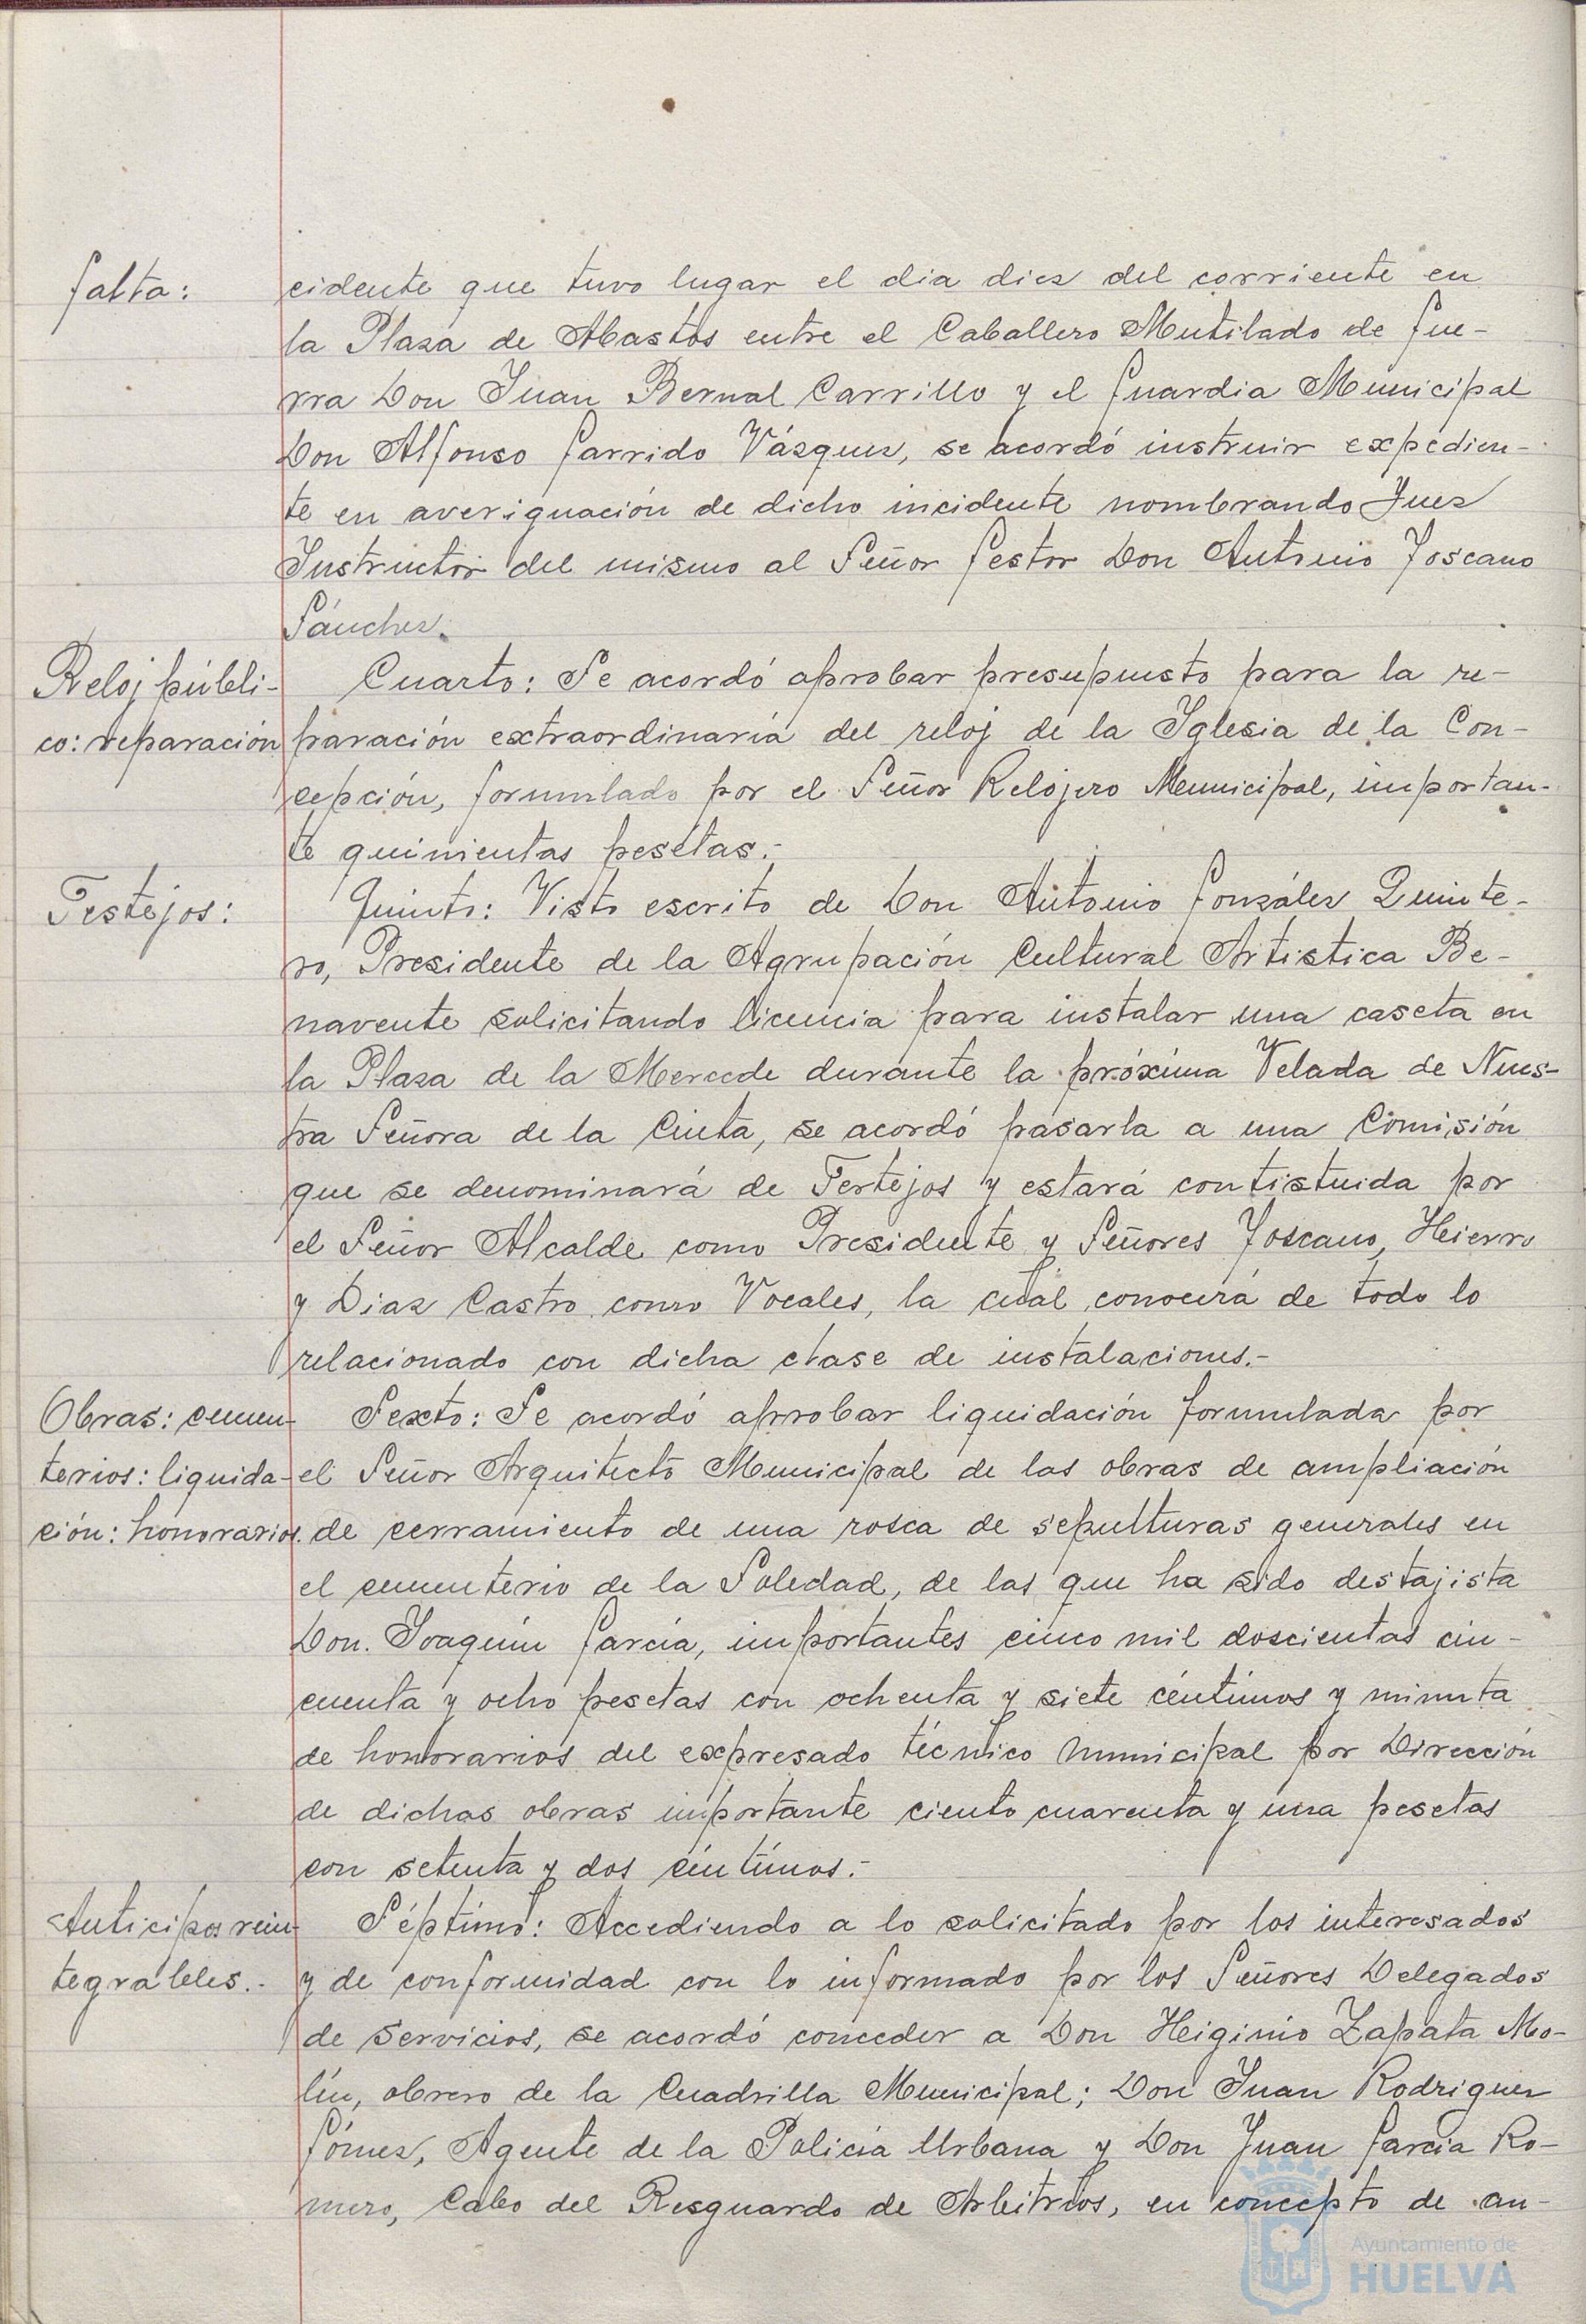 falta:
cidente que tuvo lugar el dia diez del corriente en
la Plaza de Abastos entre el Caballero Mutilado de Gue-
rra Don Juan Bernal Carrillo y el Guardia Municipal
Don Alfonso Garrido Vázquez, se acordó instruir expedien-
te en averiguación de dicho incidente nombrando Juez
Instructor del mismo al Señor Gestor Don Antonio Toscano
Sánchez.
Reloj públi-
co: reparación
Cuarto: Se acordó aprobar presupuesto para la re-
paración extraordinaria del reloj de la Iglesia de la Con-
cepción, formulado por el Señor Relojero Municipal, importan-
te quinientas pesetas.-
Festejos:
Quinto: Visto escrito de Don Antonio González Quinte-
ro, Presidente de la Agrupación Cultural Artistica Be-
navente solicitando licencia para instalar una caseta en
la Plaza de la Mercede durante la próxima Velada de Nues-
tra Señora de la Cinta, se acordó pasarla a una Comisión
que se denominará de Festejos y estará contistuida por
el Señor Alcalde como Presidente y Señores Toscano, Hierro
y Diaz Castro como Vocales, la cual conocerá de todo lo
relacionado con dicha clase de instalaciones.-
Obras: cemen-
terios: liquida-
ción: honorarios.
Sexto: Se acordó aprobar liquidación formulada por
el Señor Arquitecto Municipal de las obras de ampliación
de cerramiento de una rosca de sepulturas generales en
el cementerio de la Soledad, de las que ha sido destajista
Don. Joaquín García, importantes cinco mil doscientas cin-
cuenta y ocho pesetas con ochenta y siete céntimos y minuta
de honorarios del expresado técnico municipal por Dirección
de dichas obras importante ciento cuarenta y una pesetas
con setenta y dos céntimos.-
Anticipos rein-
tegrables.-
Séptimo: Accediendo a lo solicitado por los interesados
y de conformidad con lo informado por los Señores Delegados
de Servicios, se acordó conceder a Don Heiginio Zapata Mo-
lín, obrero de la Cuadrilla Municipal; Don Juan Rodriguez
Gómez, Agente de la Policía Urbana y Don Juan García Ro-
mero, Cabo del Resguardo de Arbitrios, en concepto de an-
Ayuntamiento de
HUELVA